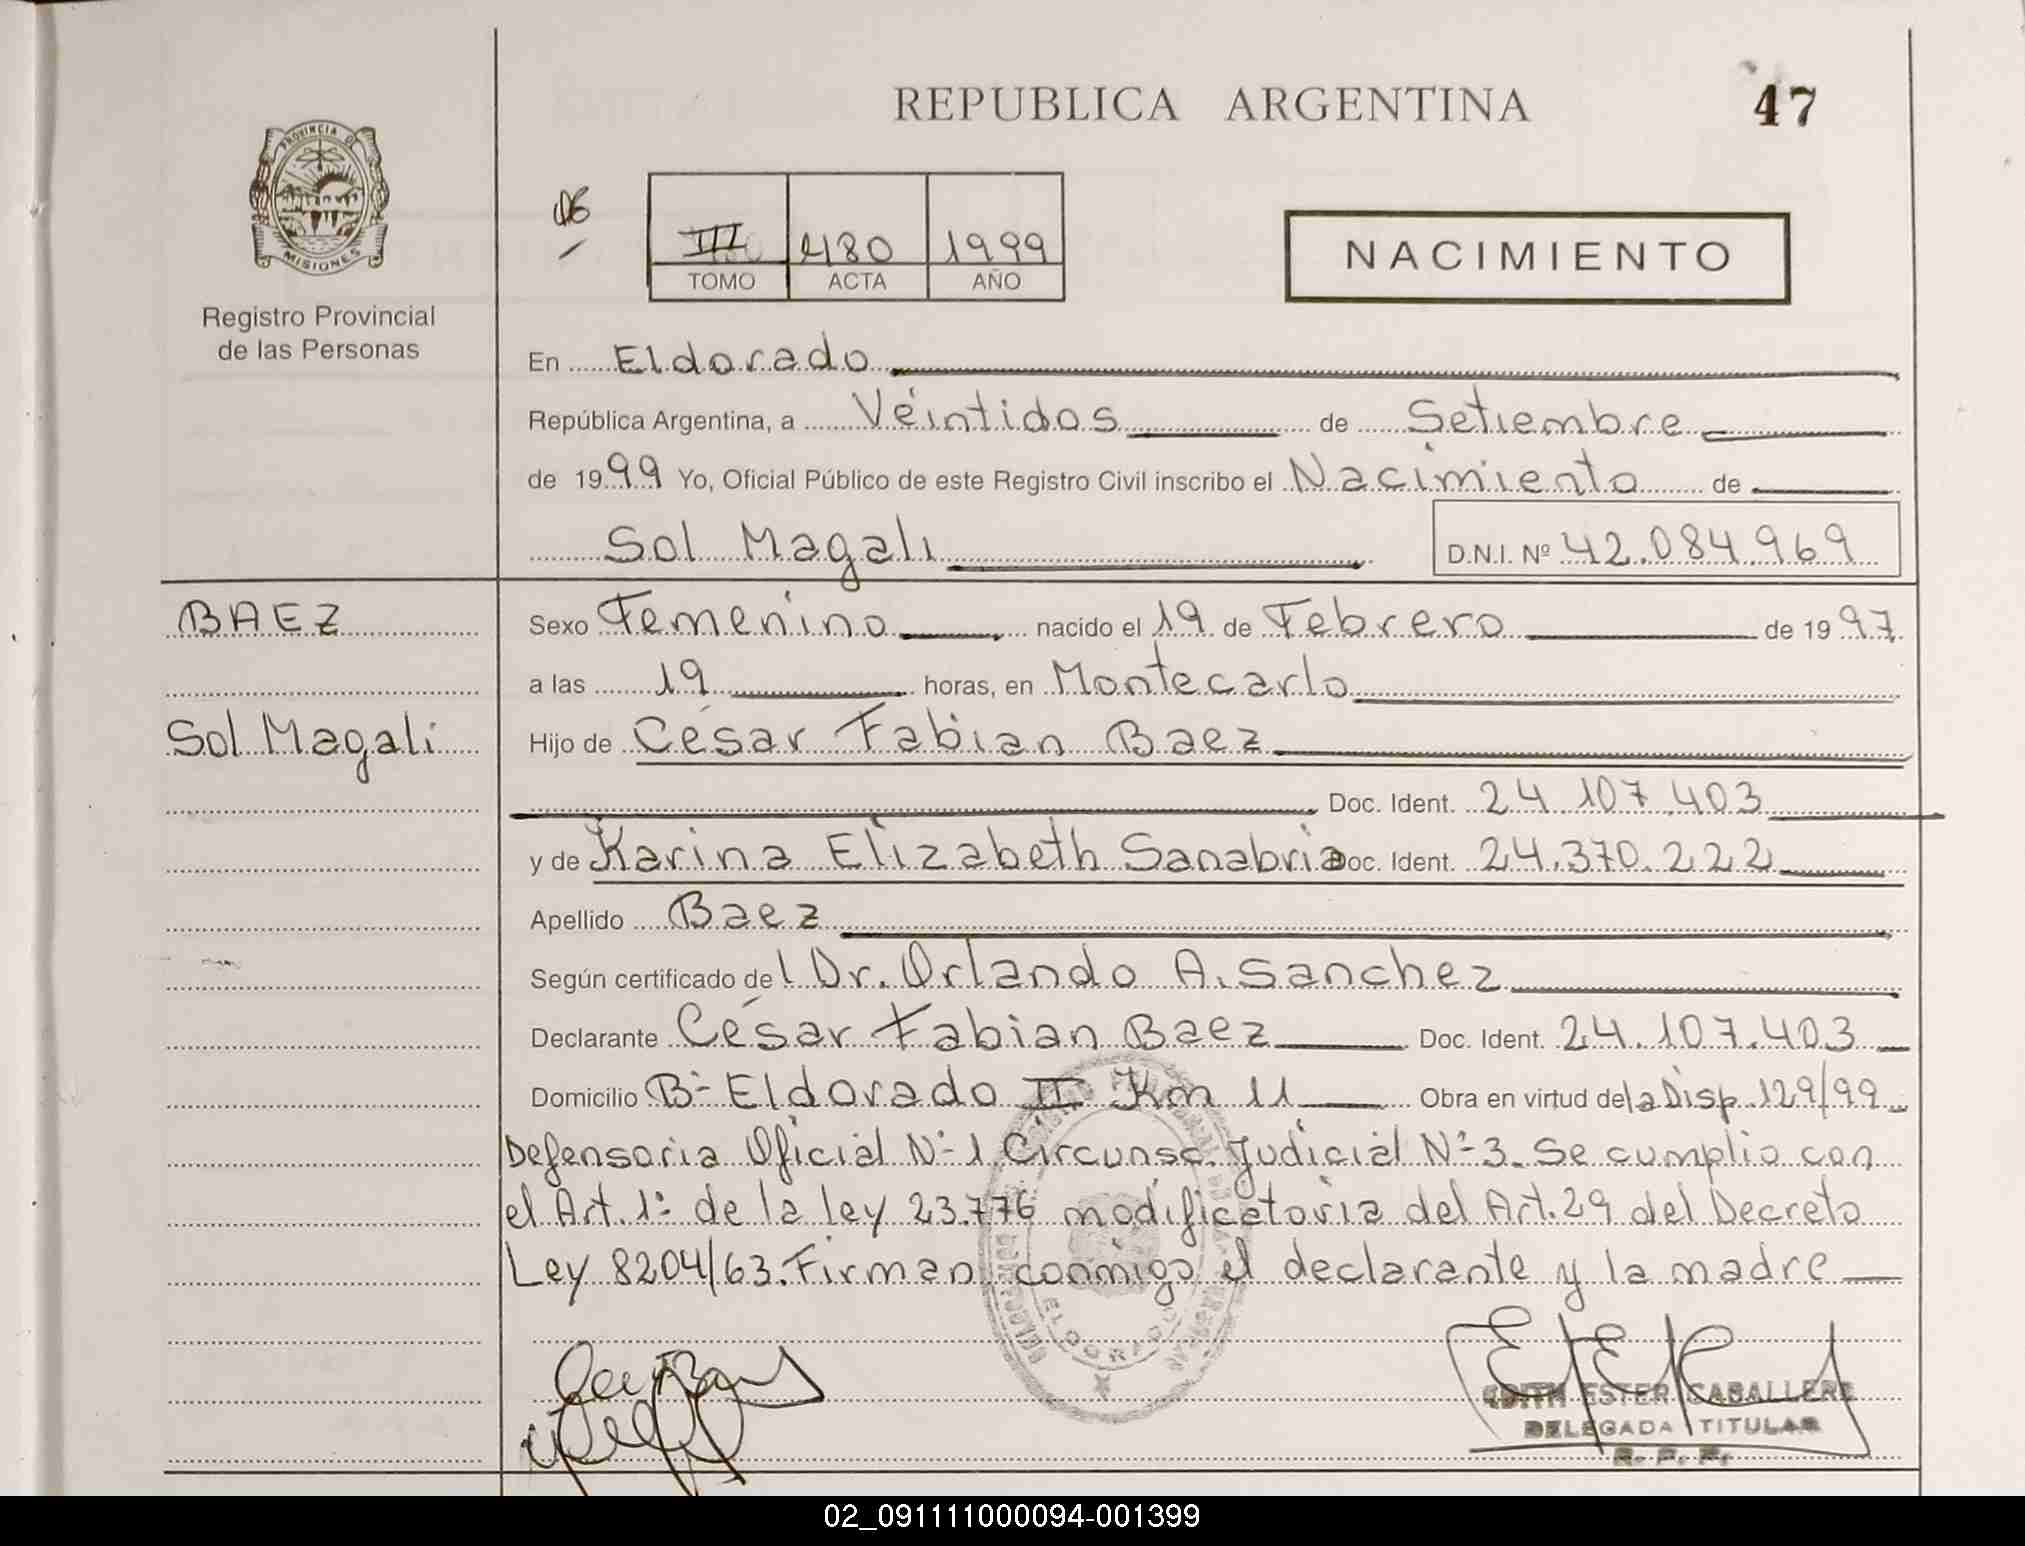 REPUBLICA ARGENTINA
47
PROVINCIA DE
MISIONES
Registro Provincial
de las Personas
06
III 480 1999
TOMO ACTA AÑO
NACIMIENTO
En Eldorado
República Argentina, a Veintidos de Setiembre
de 1999 Yo, Oficial Público de este Registro Civil inscribo el Nacimiento de
Sol Magali D.N.I. Nº 42.084.969
BAEZ
Sol Magali
Sexo Femenino nacido el 19 de Febrero de 1997
a las 19 horas, en Montecarlo
Hijo de César Fabian Baez
Doc. Ident. 24.107.403
y de Karina Elizabeth Sanabria Doc. Ident. 24.370.222
Apellido Baez
Según certificado del Dr. Orlando A. Sanchez
Declarante César Fabian Baez Doc. Ident. 24.107.403
Domicilio Bº Eldorado II Km 11 Obra en virtud de la Disp. 129/99
Defensoria Oficial Nº 1 Circunsc. Judicial Nº 3. Se cumplio con
el Art. 1º de la ley 23.776 modificatoria del Art. 29 del Decreto
Ley 8204/63. Firman conmigo el declarante y la madre
ELDORADO
EDITH ESTER CABALLERO
DELEGADA TITULAR
R. P. P.
02_091111000094-001399